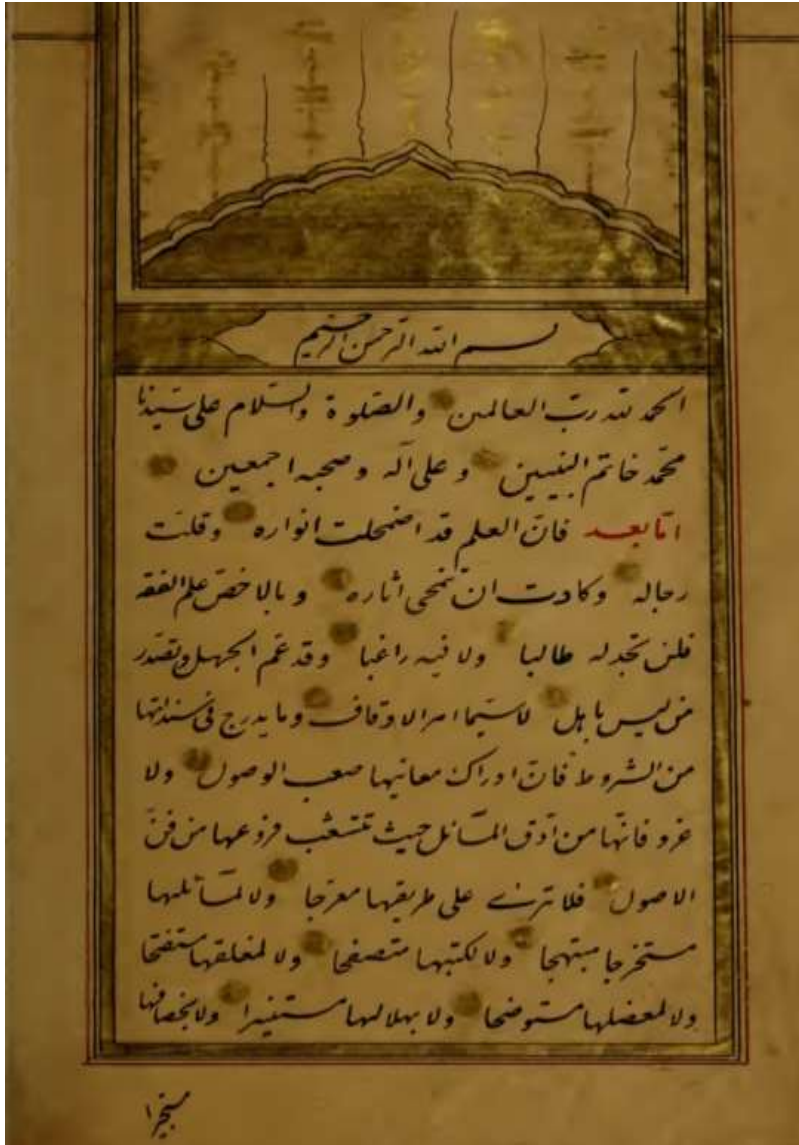 بسم الله الرحمن الرحيم
الحمد لله رب العالمين والصلوة والسلام على سيدنا
محمد خاتم النبيين وعلى آله وصحبه اجمعين
امّا بعد فانّ العلم قد اضمحلت انواره وقلّت
رجاله وكادت ان تنمحى اثاره وبالاخصّ علم الفقه
فلن تجد له طالبا ولا فيه راغبا وقد عمّ الجهل وتصدّر
من ليس باهل لاسيّما امر الاوقاف وما يدرج فى
من الشروط فانّ ادراك معانيها صعب الوصول ولا
غرو فانّها من ادقّ المسائل حيث تتشعّب فروعها من فنّ
الاصول فلا ترى على طريقها معرّجا ولا لمسائلها
مستخرجا مبتهجا ولا لكتبها متصفحا ولا لمغلقها مستفتحا
ولا لمعضلها مستوضحا ولا بهلالها مستنيرا ولا بخصافها
مستجيرا